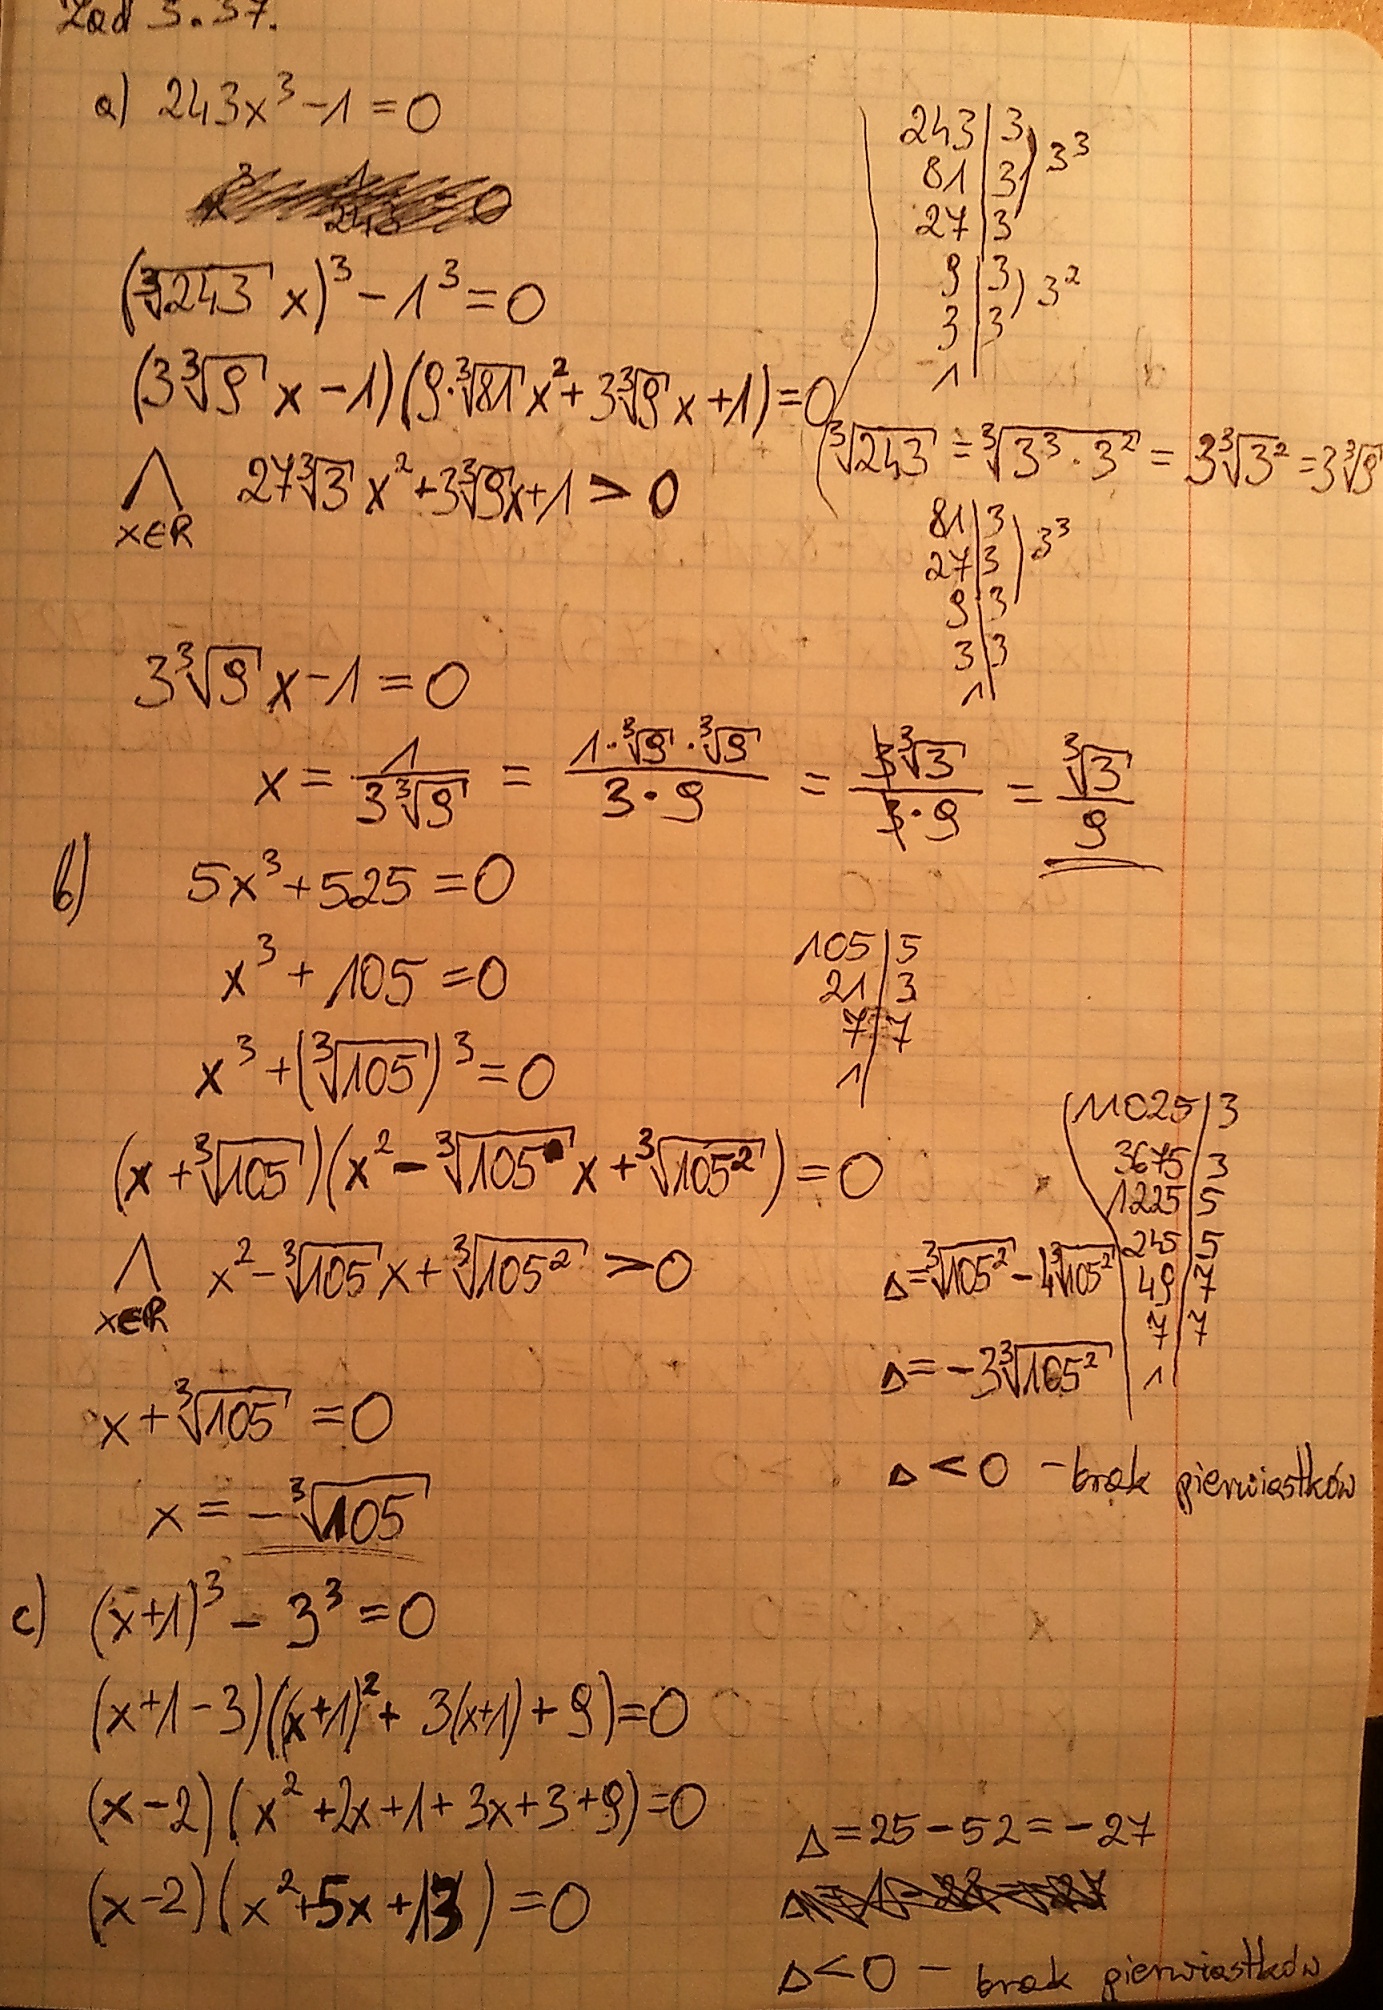 Zad 3.37.
a) 243x³ - 1 = 0
(∛243 x)³ - 1³ = 0
(3∛9 x - 1)(9·∛81 x² + 3∛9 x + 1) = 0
⋀ x∈R 27∛3 x² + 3∛9 x + 1 > 0
243 | 3
81 | 3
27 | 3 ) 3³
9 | 3
3 | 3 ) 3²
1
∛243 = ∛(3³·3²) = 3∛3² = 3∛9
81 | 3
27 | 3
9 | 3 ) 3³
3 | 3
1
3∛9 x - 1 = 0
x = 1/(3∛9) = (1·∛9·∛9)/(3·9) = (3∛3)/(3·9) = ∛3/9
b) 5x³ + 525 = 0
x³ + 105 = 0
x³ + (∛105)³ = 0
105 | 5
21 | 3
7 | 7
1
(x + ∛105)(x² - ∛105 x + ∛105²) = 0
⋀ x∈R x² - ∛105 x + ∛105² > 0
11025 | 3
3675 | 3
1225 | 5
245 | 5
49 | 7
7 | 7
1
Δ = ∛105² - 4∛105²
Δ = -3∛105²
Δ < 0 - brak pierwiastków
x + ∛105 = 0
x = -∛105
c) (x+1)³ - 3³ = 0
(x+1-3)((x+1)² + 3(x+1) + 9) = 0
(x-2)(x² + 2x + 1 + 3x + 3 + 9) = 0
(x-2)(x² + 5x + 13) = 0
Δ = 25 - 52 = -27
Δ < 0 - brak pierwiastków